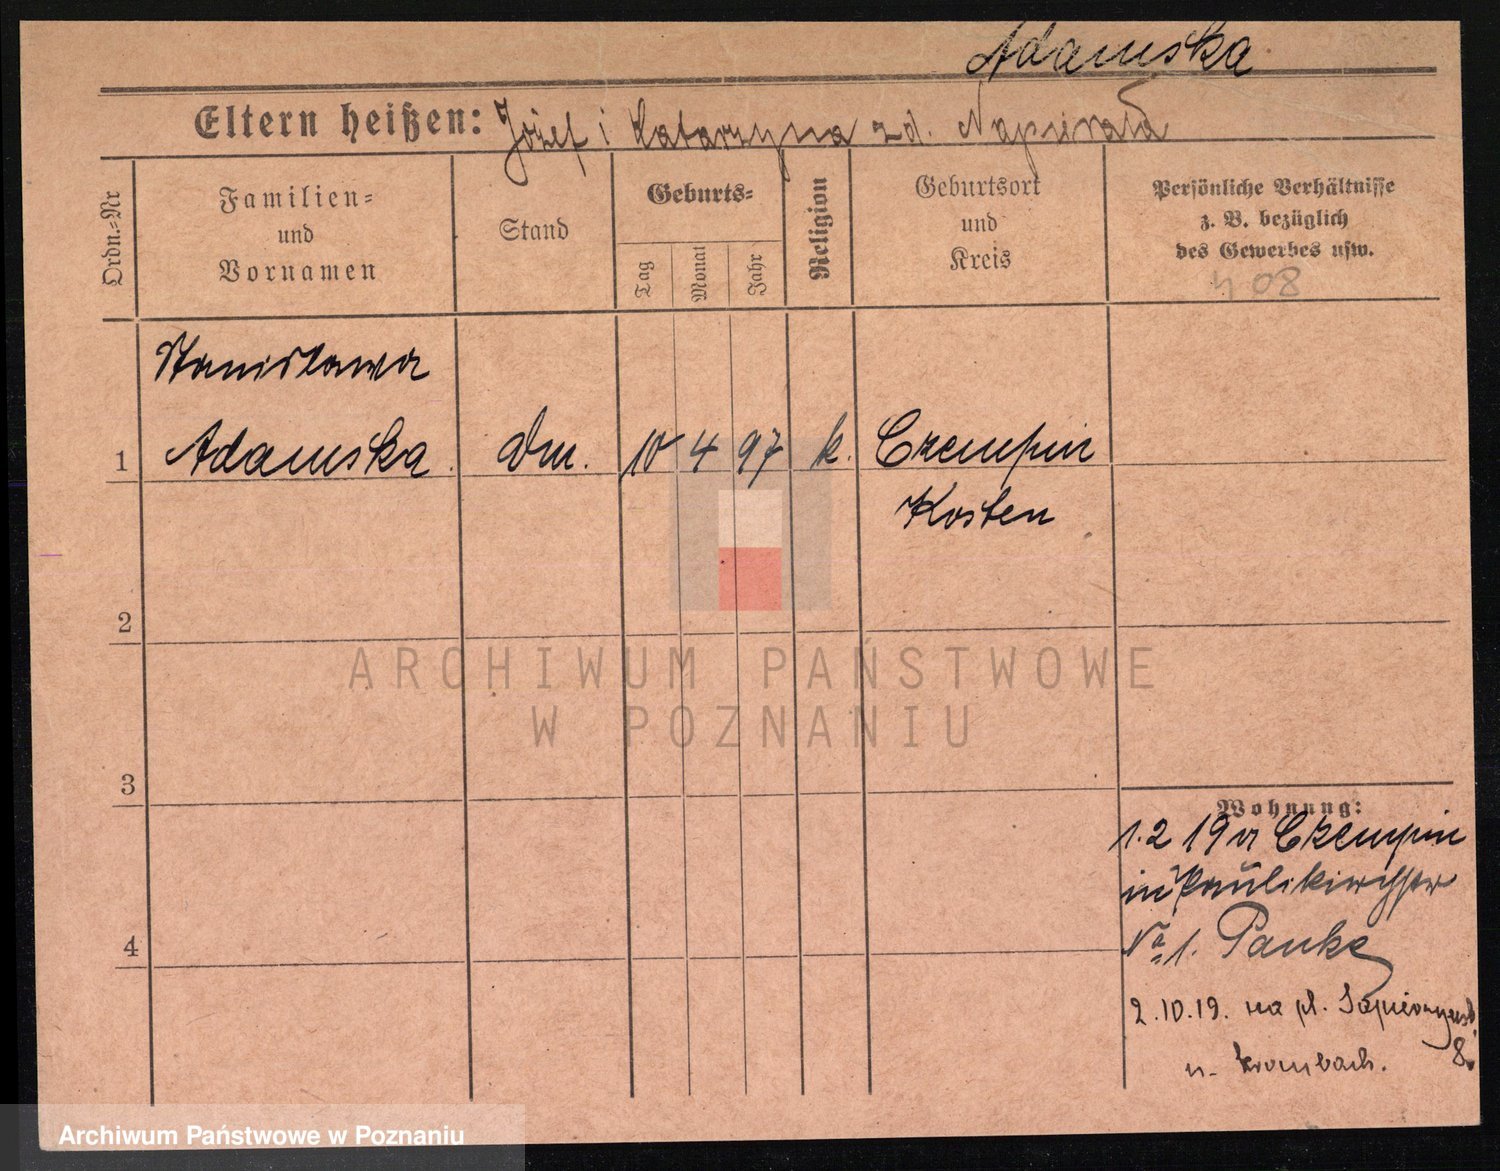 Adamska
Eltern heißen: Józef i Katarzyna zd. Napierała
Ordn.=Nr
Familien=
und
Vornamen
Stand
Geburts=
Tag
Monat
Jahr
Religion
Geburtsort
und
Kreis
Persönliche Verhältnisse
z. B. bezüglich
des Gewerbes usw.
408
Stanisława
1 Adamska. 10 4 97 k. Czempin
Kosten
2
ARCHIWUM PAŃSTWOWE
W POZNANIU
3
Wohnung:
1.2 19 Czempin
in Paulikirchstr
4
No 1. Panke
2.10.19. na pl. Sapieżyńsk.
8.
u. Krombach.
Archiwum Państwowe w Poznaniu